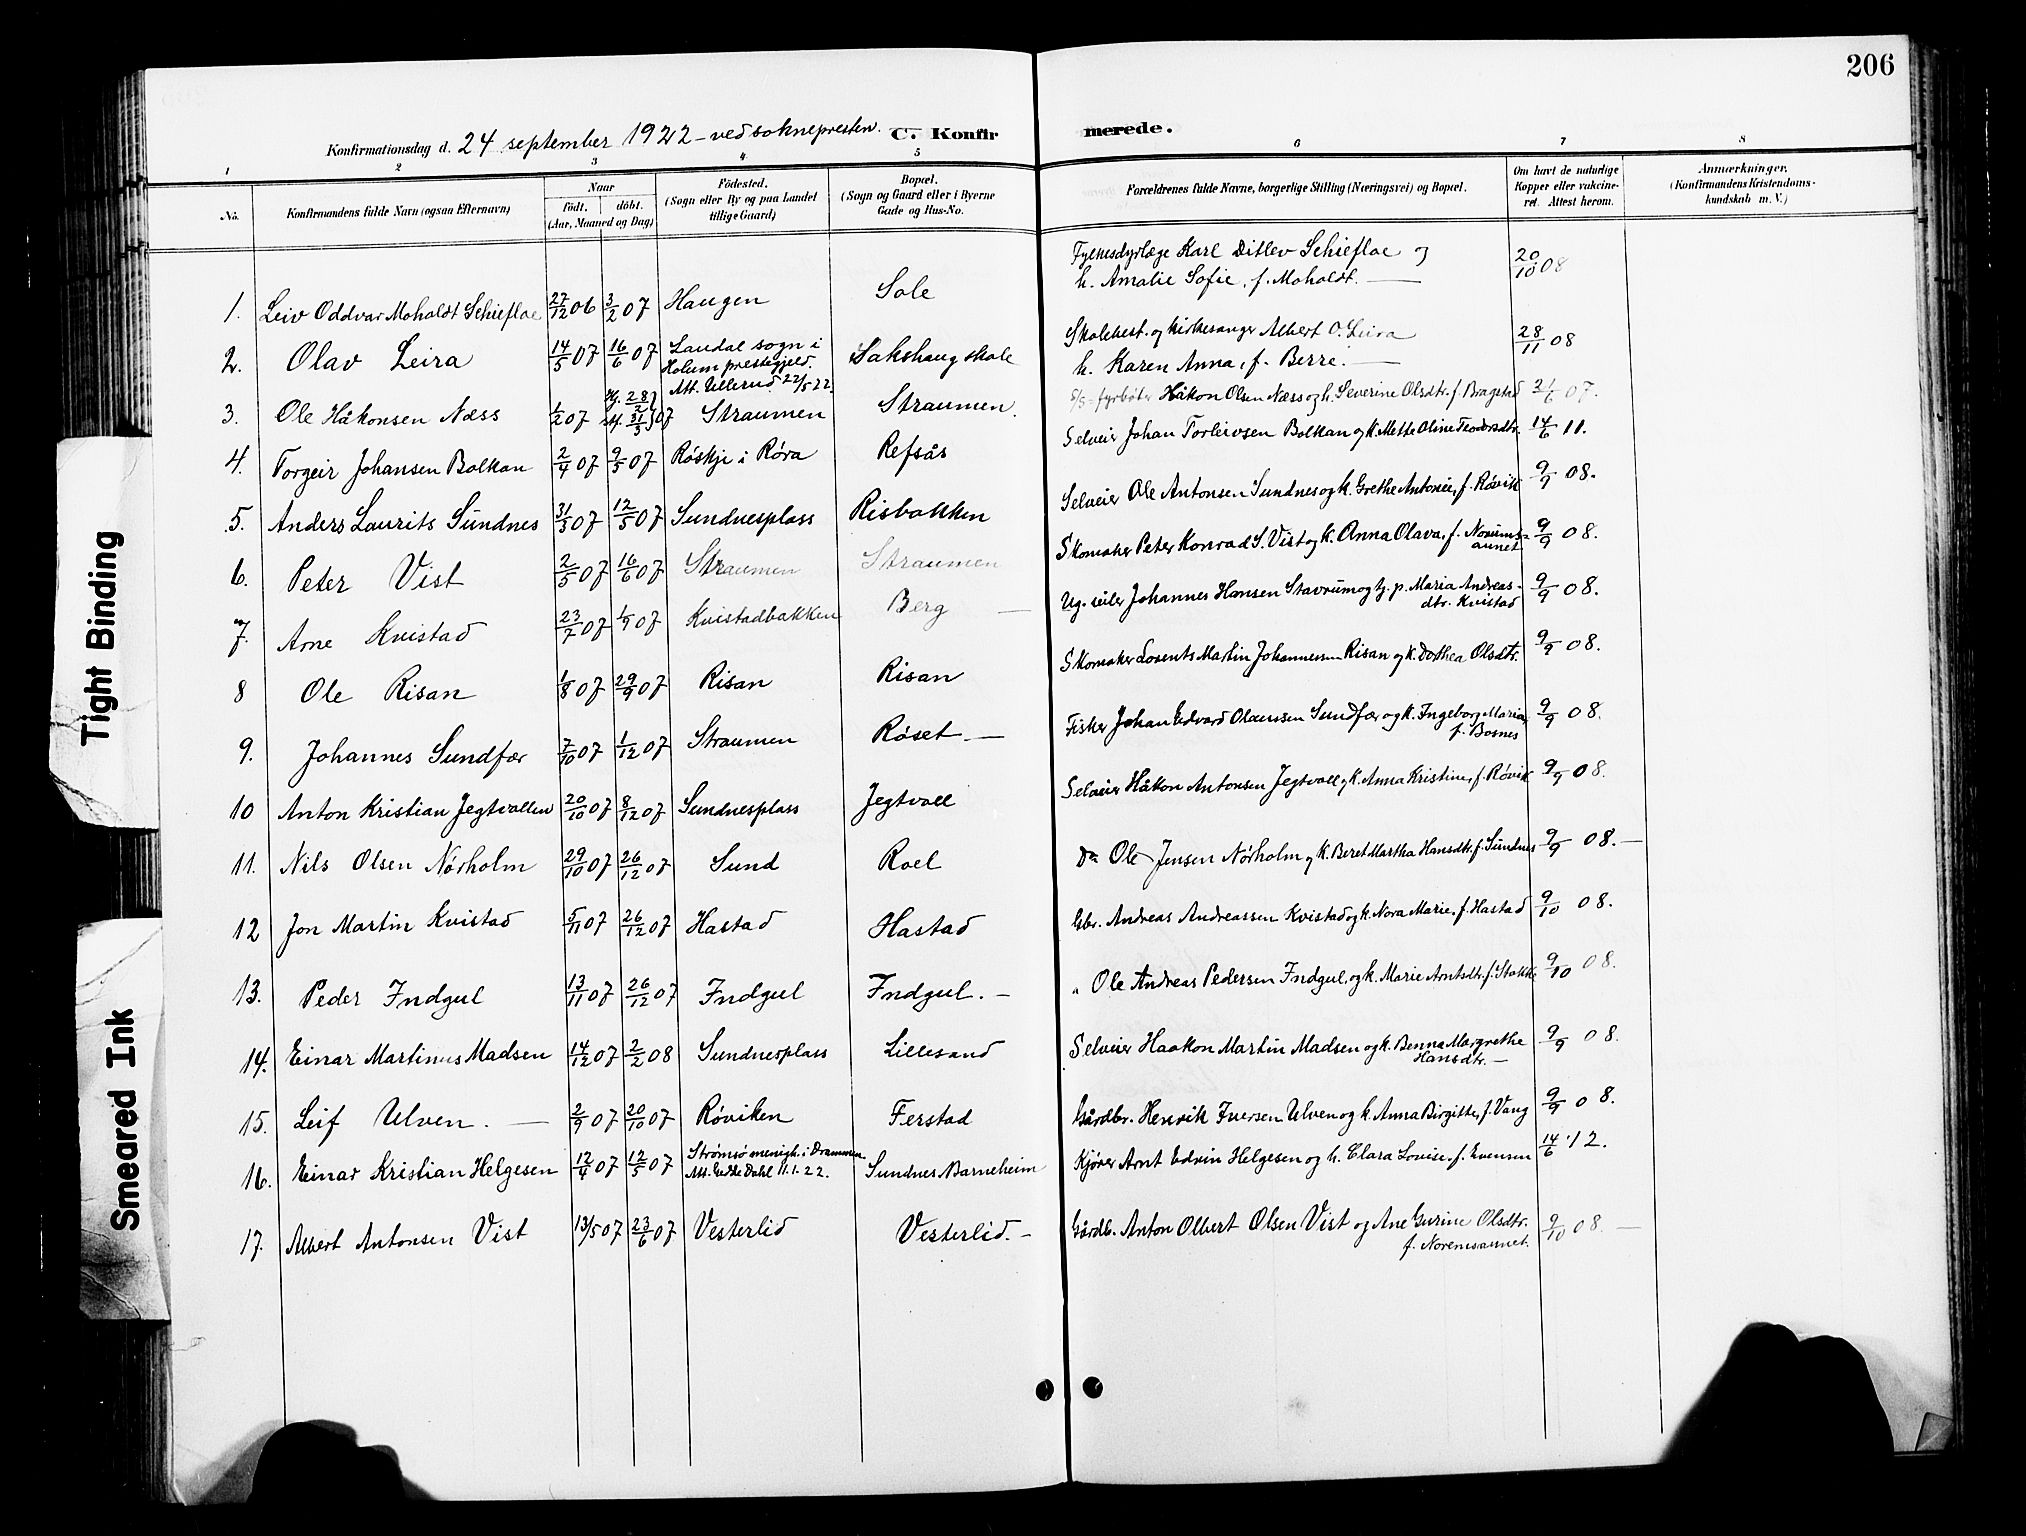 206
Konfirmationsdag d. 24 september 1922 - ved soknepresten. C. Konfirmerede.
1 2 3 4 5 6 7 8
No.
Konfirmandens fulde Navn (ogsaa Efternavn)
Naar
födt. döbt.
(Aar, Maaned og Dag)
Födested.
(Sogn eller By og paa Landet
tillige Gaard)
Bopæl.
(Sogn og Gaard eller i Byerne
Gade og Hus-No.
Forældrenes fulde Navne, borgerlige Stilling (Næringsvei) og Bopæl.
Om havt de naturlige
Kopper eller vakcine-
ret. Attest herom.
Anmærkninger.
(Konfirmandens Kristendoms-
kundskab m. V.)
Fylkesdyrlæge Karl Ditlev Schieflae og
1. Leiv Oddvar Moholdt Schieflae 27/12 06 3/2 07 Haugen Sole h. Amalie Sofie, f. Moholdt. — 20/10 08
Skolebest. og kirkesanger Albert O. Leira
2. Olav Leira 14/5 07 16/6 07 Laudal sogn i Sakshaug skole h. Karen Anna, f. Berre. — 28/11 08
Holum prestegjeld.
Att. Ullerud 22/5 22
3. Ole Håkonsen Næss 1/2 07 Hj. 28/2 st. 31/3 } 07 Straumen Straumen. fyrbøter Håkon Olsen Næss og h. Severine Olsdtr. f. Bragstad 21/6 07.
4. Torgeir Johansen Bolkan 2/4 07 9/5 07 Røskje i Røra Refsås Selveier Johan Torleivsen Bolkan og k. Mette Oline Teodorsdtr. 14/6 11.
5. Anders Laurits Sundnes 31/3 07 12/5 07 Sundnesplass Risbakken Selveier Ole Antonsen Sundnes og k. Grethe Antonie, f. Røvik 9/9 08.
6. Peter Vist 2/5 07 16/6 07 Straumen Straumen Skomaker Peter Konrad S. Vist og k. Anna Olava, f. Norums-
aunet 9/9 08.
7. Arne Kvistad 23/7 07 1/9 07 Kvistadbakken Berg — Ug. seiler Johannes Hansen Stavrum og tj. p. Maria Andreas-
dtr. Kvistad 9/9 08.
8 Ole Risan 1/8 07 29/9 07 Risan Risan Skomaker Lorents Martin Johannessen Risan og k. Dorthea Olsdtr. 9/9 08.
9. Johannes Sundfær 7/10 07 1/12 07 Straumen Røset. — Fisker Johan Edvard Olaussen Sundfær og k. Ingeborg Maria
f. Bosnes 9/9 08.
10 Anton Kristian Jegtvollen 20/10 07 8/12 07 Sundnesplass Jegtvoll Selveier Håkon Antonsen Jegtvoll og k. Anna Kristine, f. Røvik 9/9 08.
11. Nils Olsen Nørholm 29/10 07 26/12 07 Sund Roel Do Ole Jensen Nørholm og k. Beret Martha Hansdtr. f. Sundnes 9/9 08. —
12 Jon Martin Kvistad 5/11 07 26/12 07 Hastad Hastad Gbr. Andreas Andreassen Kvistad og k. Nora Marie, f. Hastad 9/10 08.
13. Peder Indgul 13/11 07 26/12 07 Indgul Indgul. — " Ole Andreas Pedersen Indgul, og k. Marie Arntsdtr. f. Stokke 9/10 08.
14. Einar Martinus Madsen 14/12 07 2/2 08 Sundnesplass Lillesand Selveier Haakon Martin Madsen og k. Benna Margrethe
Hansdtr. — 9/9 08.
15. Leif Ulven. — 2/9 07 20/10 07 Røviken Ferstad Gårdbr. Henrik Iversen Ulven og k. Anna Birgitte, f. Vang 9/9 08.
16. Einar Kristian Helgesen 12/4 07 12/5 07 Strømsø menigh. i Drammen Sundnes Barneheim Kjører Arnt Edvin Helgesen og h. Clara Lovise, f. Evensen 14/6 12.
Att. Dahl 11.1.22.
17. Albert Antonsen Vist 13/5 07 23/6 07 Vesterlid Vesterlid. — Gårdb. Anton Olbert Olsen Vist og Ane Gurine Olsdtr.
f. Noremsaunet. 9/10 08 —
Tight Binding
Smeared Ink